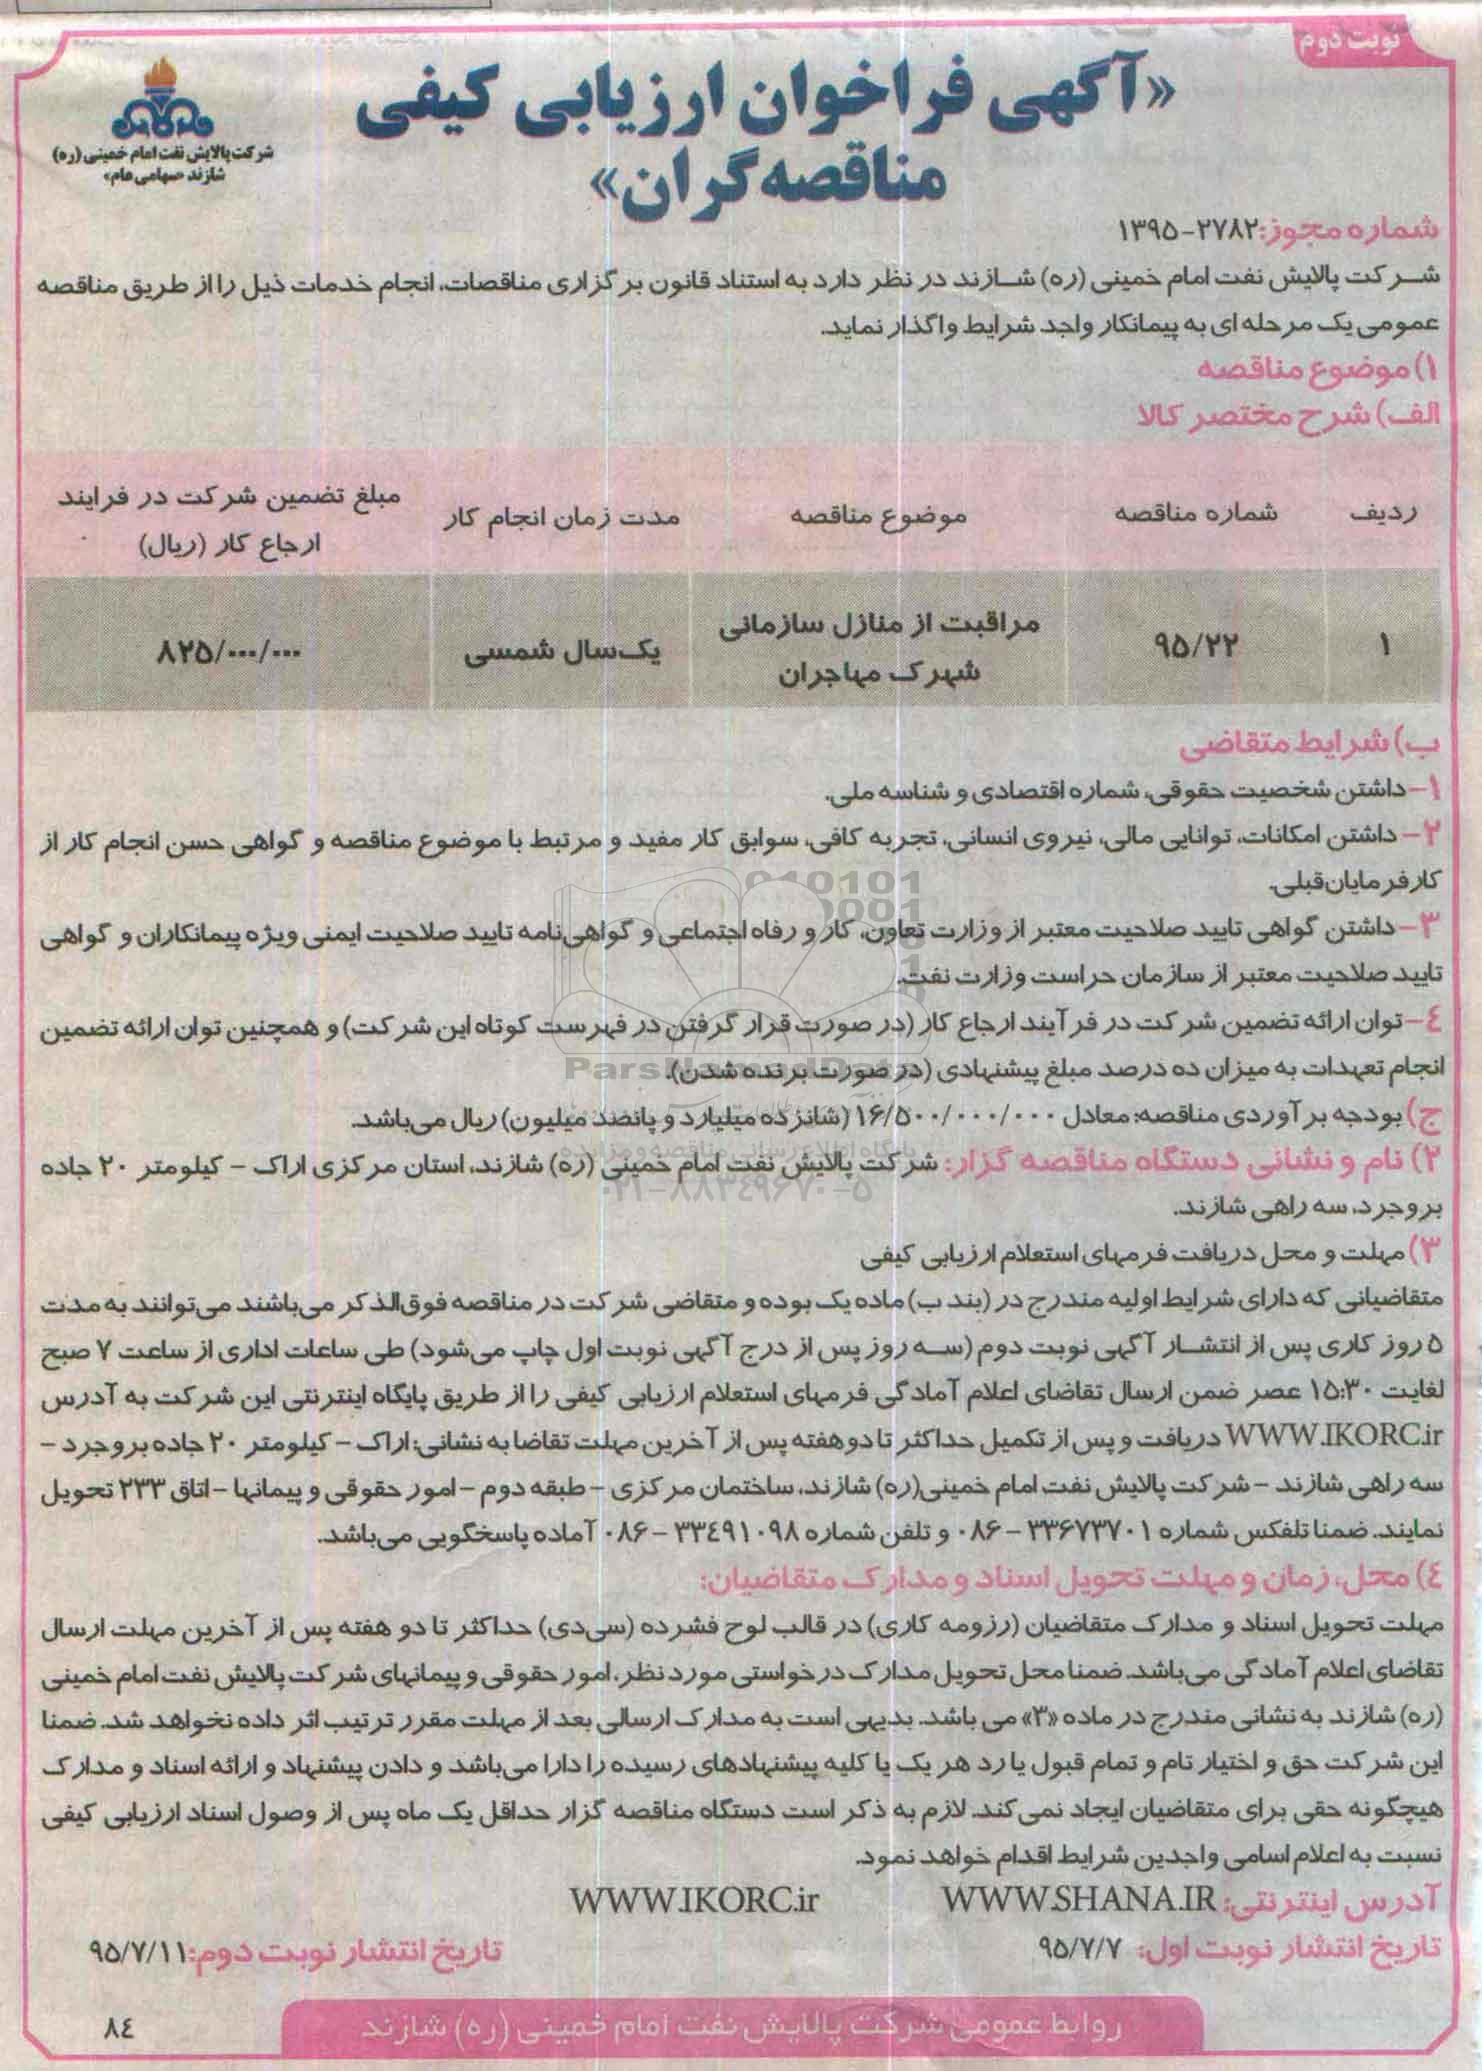 نوبت دوم
«آگهی فراخوان ارزیابی کیفی
مناقصه‌گران»
شرکت پالایش نفت امام خمینی (ره)
شازند «سهامی عام»
شماره مجوز: ۲۷۸۲-۱۳۹۵
شرکت پالایش نفت امام خمینی (ره) شازند در نظر دارد به استناد قانون برگزاری مناقصات، انجام خدمات ذیل را از طریق مناقصه
عمومی یک مرحله ای به پیمانکار واجد شرایط واگذار نماید.
۱) موضوع مناقصه
الف) شرح مختصر کالا
ردیف شماره مناقصه موضوع مناقصه مدت زمان انجام کار مبلغ تضمین شرکت در فرایند
ارجاع کار (ریال)
۱ ۹۵/۲۲ مراقبت از منازل سازمانی
شهرک مهاجران یک‌سال شمسی ۸۲۵/۰۰۰/۰۰۰
ب) شرایط متقاضی
۱- داشتن شخصیت حقوقی، شماره اقتصادی و شناسه ملی.
۲- داشتن امکانات، توانایی مالی، نیروی انسانی، تجربه کافی، سوابق کار مفید و مرتبط با موضوع مناقصه و گواهی حسن انجام کار از
کارفرمایان قبلی.
۳- داشتن گواهی تایید صلاحیت معتبر از وزارت تعاون، کار و رفاه اجتماعی و گواهی‌نامه تایید صلاحیت ایمنی ویژه پیمانکاران و گواهی
تایید صلاحیت معتبر از سازمان حراست وزارت نفت.
۴- توان ارائه تضمین شرکت در فرآیند ارجاع کار (در صورت قرار گرفتن در فهرست کوتاه این شرکت) و همچنین توان ارائه تضمین
انجام تعهدات به میزان ده درصد مبلغ پیشنهادی (در صورت برنده شدن).
ج) بودجه برآوردی مناقصه: معادل ۱۶/۵۰۰/۰۰۰/۰۰۰ (شانزده میلیارد و پانصد میلیون) ریال می‌باشد.
۲) نام و نشانی دستگاه مناقصه گزار: شرکت پالایش نفت امام خمینی (ره) شازند، استان مرکزی اراک - کیلومتر ۲۰ جاده
بروجرد، سه راهی شازند.
۳) مهلت و محل دریافت فرمهای استعلام ارزیابی کیفی
متقاضیانی که دارای شرایط اولیه مندرج در (بند ب) ماده یک بوده و متقاضی شرکت در مناقصه فوق‌الذکر می‌باشند می‌توانند به مدت
۵ روز کاری پس از انتشار آگهی نوبت دوم (سه روز پس از درج آگهی نوبت اول چاپ می‌شود) طی ساعات اداری از ساعت ۷ صبح
لغایت ۱۵:۳۰ عصر ضمن ارسال تقاضای اعلام آمادگی فرمهای استعلام ارزیابی کیفی را از طریق پایگاه اینترنتی این شرکت به آدرس
WWW.IKORC.ir دریافت و پس از تکمیل حداکثر تا دو هفته پس از آخرین مهلت تقاضا به نشانی: اراک - کیلومتر ۲۰ جاده بروجرد -
سه راهی شازند - شرکت پالایش نفت امام خمینی(ره) شازند، ساختمان مرکزی - طبقه دوم - امور حقوقی و پیمانها - اتاق ۲۳۳ تحویل
نمایند. ضمنا تلفکس شماره ۳۳۶۷۳۷۰۱ - ۰۸۶ و تلفن شماره ۳۳۴۹۱۰۹۸ - ۰۸۶ آماده پاسخگویی می‌باشد.
۴) محل، زمان و مهلت تحویل اسناد و مدارک متقاضیان:
مهلت تحویل اسناد و مدارک متقاضیان (رزومه کاری) در قالب لوح فشرده (سی‌دی) حداکثر تا دو هفته پس از آخرین مهلت ارسال
تقاضای اعلام آمادگی می‌باشد. ضمنا محل تحویل مدارک درخواستی مورد نظر، امور حقوقی و پیمانهای شرکت پالایش نفت امام خمینی
(ره) شازند به نشانی مندرج در ماده «۳» می باشد. بدیهی است به مدارک ارسالی بعد از مهلت مقرر ترتیب اثر داده نخواهد شد. ضمنا
این شرکت حق و اختیار تام و تمام قبول یا رد هر یک یا کلیه پیشنهادهای رسیده را دارا می‌باشد و دادن پیشنهاد و ارائه اسناد و مدارک
هیچگونه حقی برای متقاضیان ایجاد نمی‌کند. لازم به ذکر است دستگاه مناقصه گزار حداقل یک ماه پس از وصول اسناد ارزیابی کیفی
نسبت به اعلام اسامی واجدین شرایط اقدام خواهد نمود.
آدرس اینترنتی: WWW.SHANA.IR WWW.IKORC.ir
تاریخ انتشار نوبت اول: ۹۵/۷/۷ تاریخ انتشار نوبت دوم: ۹۵/۷/۱۱
روابط عمومی شرکت پالایش نفت امام خمینی (ره) شازند
۸۴
ParsNamadData
۰۲۱-۸۸۳۴۹۶۷۰-۵